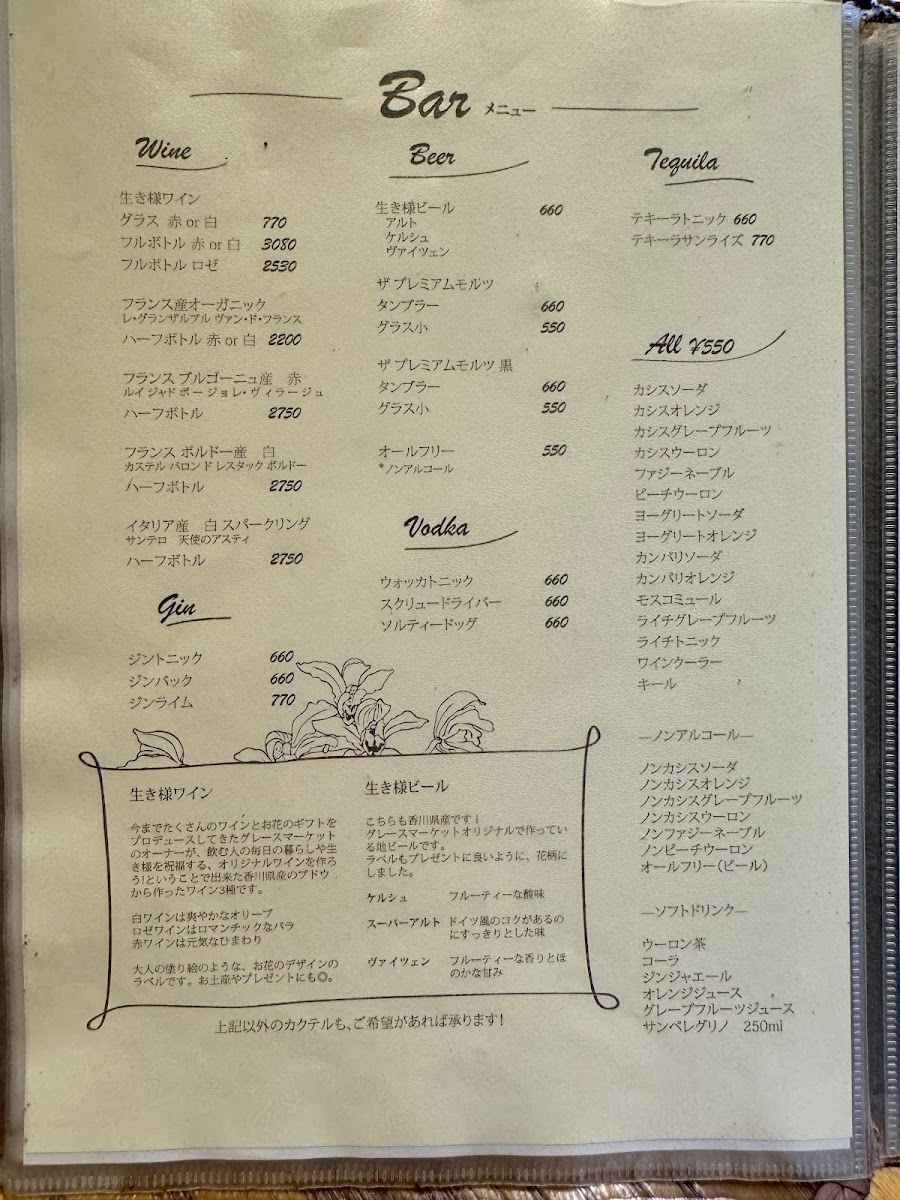 Bar メニュー
Wine
生き様ワイン
グラス 赤 or 白 770
フルボトル 赤 or 白 3080
フルボトル ロゼ 2530
フランス産オーガニック
レ・グランザルブル ヴァン・ド・フランス
ハーフボトル 赤 or 白 2200
フランス ブルゴーニュ産 赤
ルイ ジャド ボージョレ・ヴィラージュ
ハーフボトル 2750
フランス ボルドー産 白
カステル バロンド レスタック ボルドー
ハーフボトル 2750
イタリア産 白 スパークリング
サンテロ 天使のアスティ
ハーフボトル 2750
Gin
ジントニック 660
ジンバック 660
ジンライム 770
Beer
生き様ビール 660
アルト
ケルシュ
ヴァイツェン
ザ プレミアムモルツ
タンブラー 660
グラス小 550
ザ プレミアムモルツ 黒
タンブラー 660
グラス小 550
オールフリー 550
*ノンアルコール
Vodka
ウォッカトニック 660
スクリュードライバー 660
ソルティードッグ 660
Tequila
テキーラトニック 660
テキーラサンライズ 770
All ¥550
カシスソーダ
カシスオレンジ
カシスグレープフルーツ
カシスウーロン
ファジーネーブル
ピーチウーロン
ヨーグリートソーダ
ヨーグリートオレンジ
カンパリソーダ
カンパリオレンジ
モスコミュール
ライチグレープフルーツ
ライチトニック
ワインクーラー
キール
―ノンアルコール―
ノンカシスソーダ
ノンカシスオレンジ
ノンカシスグレープフルーツ
ノンカシスウーロン
ノンファジーネーブル
ノンピーチウーロン
オールフリー(ビール)
―ソフトドリンク―
ウーロン茶
コーラ
ジンジャエール
オレンジジュース
グレープフルーツジュース
サンペレグリノ 250ml
生き様ワイン
今までたくさんのワインとお花のギフトを
プロデュースしてきたグレースマーケット
のオーナーが、飲む人の毎日の暮らしや生
き様を祝福する、オリジナルワインを作ろ
う!ということで出来た香川県産のブドウ
から作ったワイン3種です。
白ワインは爽やかなオリーブ
ロゼワインはロマンチックなバラ
赤ワインは元気なひまわり
大人の塗り絵のような、お花のデザインの
ラベルです。お土産やプレゼントにも◎。
生き様ビール
こちらも香川県産です!
グレースマーケットオリジナルで作ってい
る地ビールです。
ラベルもプレゼントに良いように、花柄に
しました。
ケルシュ フルーティーな酸味
スーパーアルト ドイツ風のコクがあるの
にすっきりとした味
ヴァイツェン フルーティーな香りとほ
のかな甘み
上記以外のカクテルも、ご希望があれば承ります!